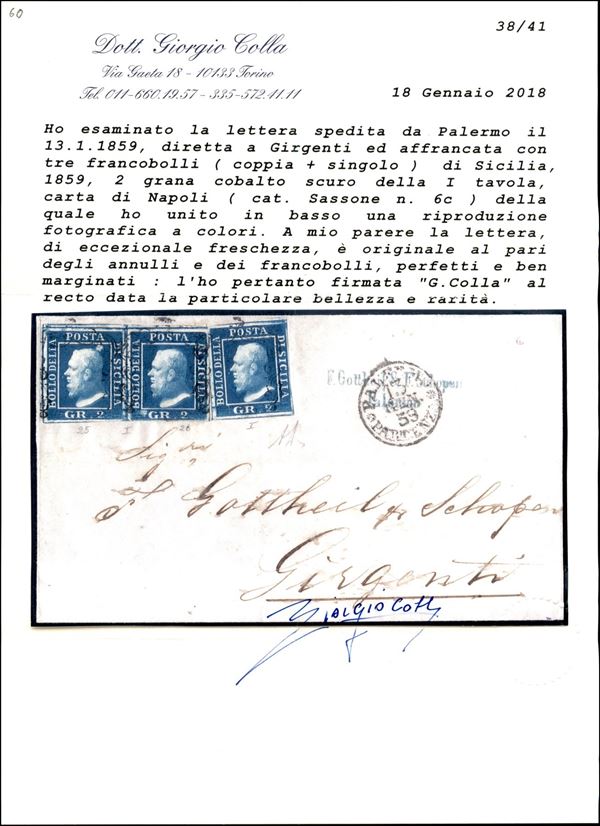 60
38/41
Dott. Giorgio Colla
Via Gaeta 18 - 10133 Torino
Tel. 011-660.19.57 - 335-572.41.11
18 Gennaio 2018
Ho esaminato la lettera spedita da Palermo il
13.1.1859, diretta a Girgenti ed affrancata con
tre francobolli ( coppia + singolo ) di Sicilia,
1859, 2 grana cobalto scuro della I tavola,
carta di Napoli ( cat. Sassone n. 6c ) della
quale ho unito in basso una riproduzione
fotografica a colori. A mio parere la lettera,
di eccezionale freschezza, è originale al pari
degli annulli e dei francobolli, perfetti e ben
marginati : l'ho pertanto firmata "G.Colla" al
recto data la particolare bellezza e rarità.
BOLLO DELLA POSTA DI SICILIA GR. 2
BOLLO DELLA POSTA DI SICILIA GR. 2
BOLLO DELLA POSTA DI SICILIA GR. 2
25 I 26 I
F. Gottheil
PARTENZA
Sig ri
F Gottheil & Schopen
Girgenti
Giorgio Colla